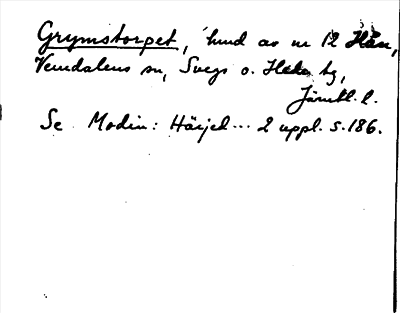 Grymstorpet, hmd av nr 12 Hån,
Vemdalens sn, Svegs o. Hede tg,
Jämtl. l.
Se Modin: Härjed... 2 uppl. s. 186.